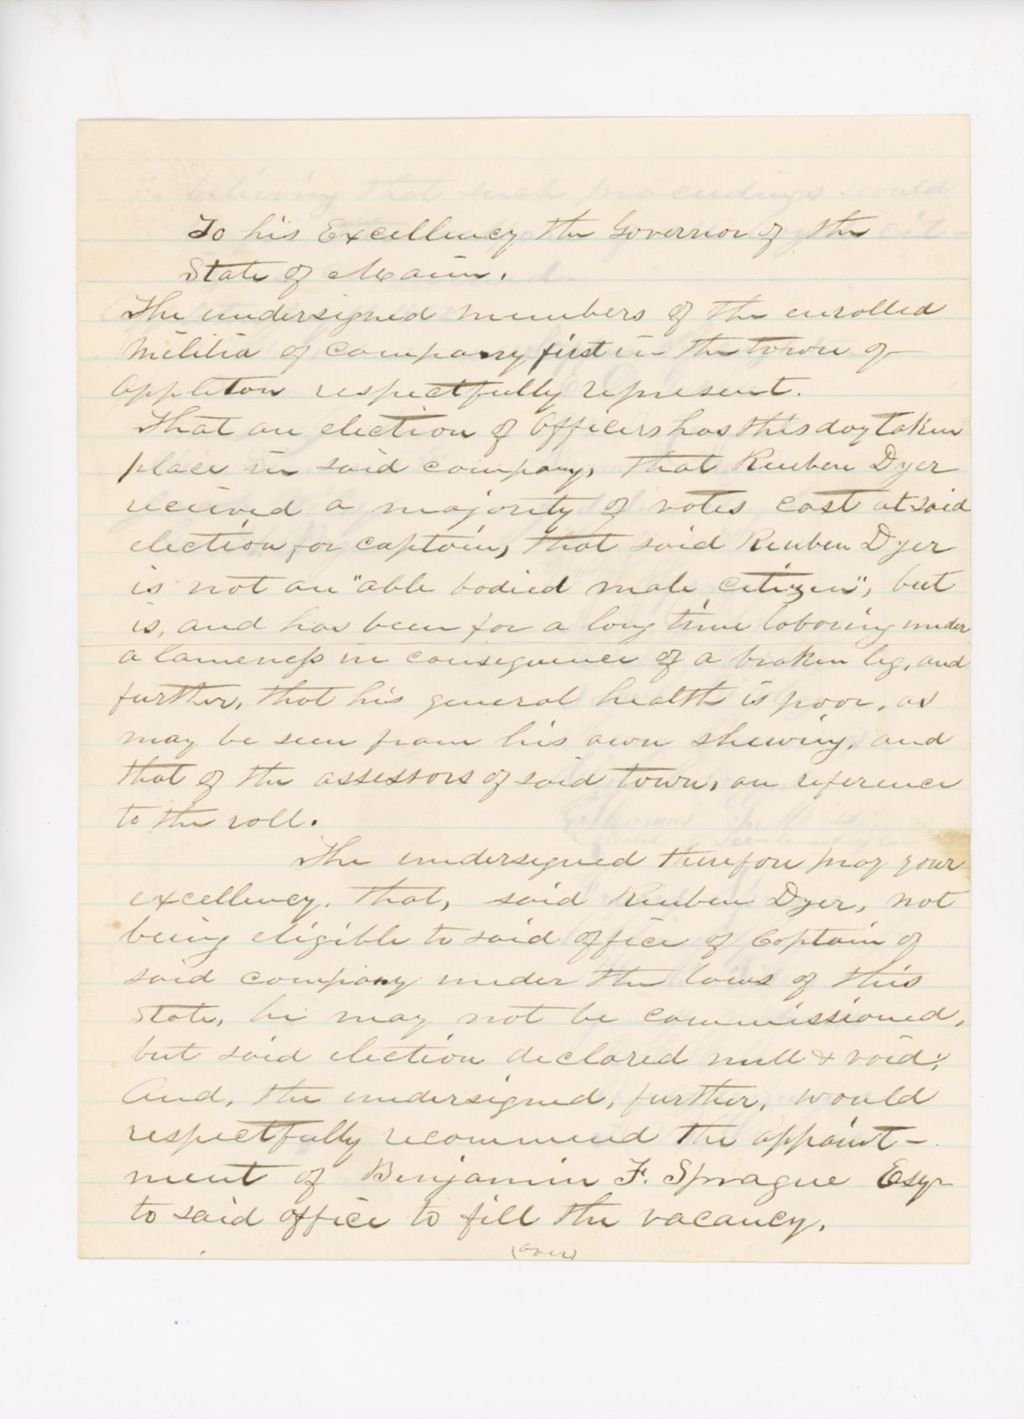 To his Excellency the Governor of the
State of Maine.
The undersigned members of the enrolled
militia of company first in the town of
Appleton respectfully represent.
That an election of Officers has this day taken
place in said company, that Reuben Dyer
received a majority of votes cast at said
election for captain, that said Reuben Dyer
is not an "able bodied male citizen", but
is, and has been for a long time laboring under
a lameness in consequence of a broken leg, and
further, that his general health is poor, as
may be seen from his own shewing, and
that of the assessors of said town, on reference
to the roll.
The undersigned therefore pray your
excellency. that, said Reuben Dyer, not
being eligible to said office of Captain of
said company under the laws of this
State, he may not be commissioned,
but said election declared null & void;
And, the undersigned, further, would
respectfully recommend the appoint-
ment of Benjamin F. Sprague Esqr
to said office to fill the vacancy.
(over)